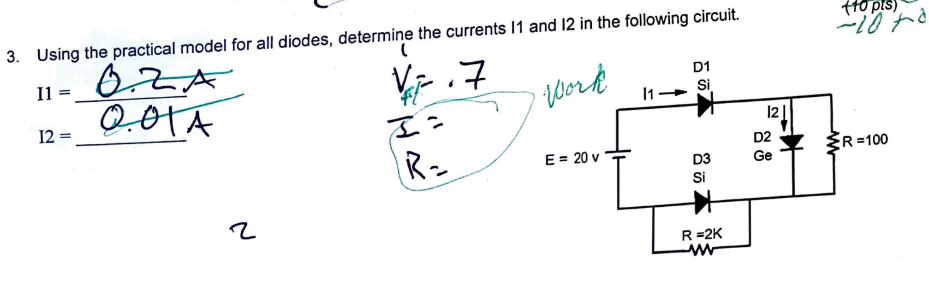 (10 pts)
-10
3. Using the practical model for all diodes, determine the currents I1 and I2 in the following circuit.
I1 = 0.2A
I2 = 0.01A
V = .7
I =
R =
work
I1
D1
Si
I2
D2
Ge
R =100
E = 20 v
D3
Si
R =2K
2